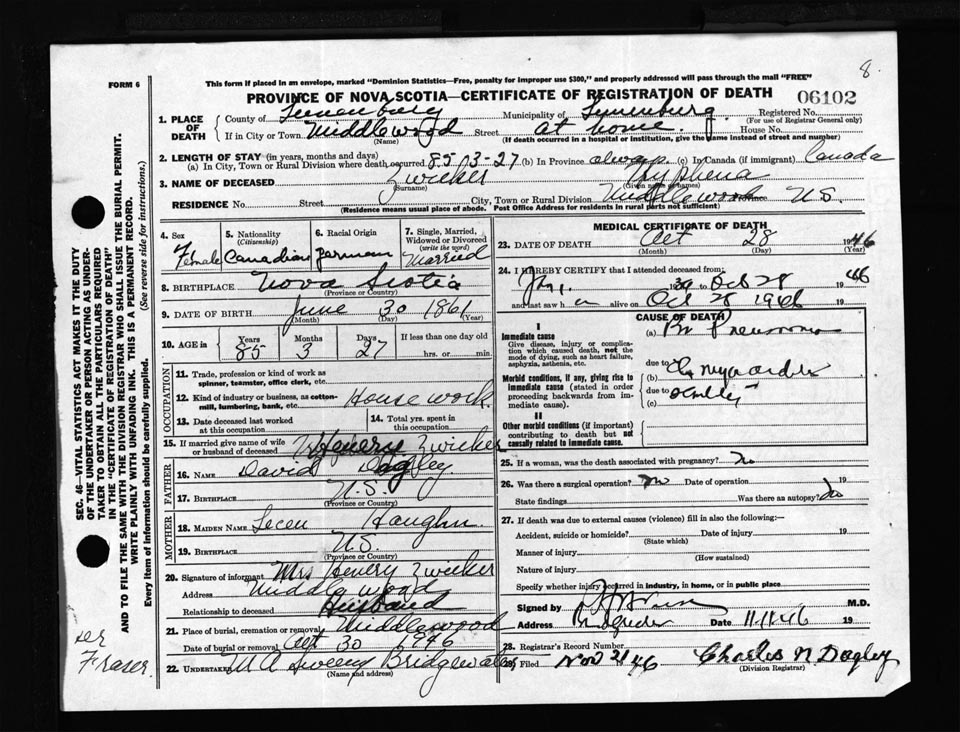 8.
FORM 6
This form if placed in an envelope, marked "Dominion Statistics—Free, penalty for improper use $300," and properly addressed will pass through the mail "FREE"
PROVINCE OF NOVA SCOTIA—CERTIFICATE OF REGISTRATION OF DEATH
06102
1. PLACE OF DEATH
County of Lunenburg Municipality of Lunenburg Registered No.
(For use of Registrar General only)
If in City or Town Middlewood Street at home. House No.
(Name) (If death occurred in a hospital or institution, give the name instead of street and number)
2. LENGTH OF STAY (in years, months and days)
(a) In City, Town or Rural Division where death occurred 85-3-27 (b) In Province always (c) In Canada (if immigrant) Canada
3. NAME OF DECEASED Zwicker Tryphena
(Surname) (Given name or names)
RESIDENCE No. Street City, Town or Rural Division Middlewood Province N.S.
(Residence means usual place of abode. Post Office Address for residents in rural parts not sufficient)
4. Sex
Female
5. Nationality
(Citizenship)
Canadian
6. Racial Origin
German
7. Single, Married, Widowed or Divorced
(write the word)
Married
8. BIRTHPLACE Nova Scotia
(Province or Country)
9. DATE OF BIRTH June 30 1861
(Month) (Day) (Year)
10. AGE in Years Months Days If less than one day old
85 3 27 hrs. or min.
OCCUPATION
11. Trade, profession or kind of work as spinner, teamster, office clerk, etc.
12. Kind of industry or business, as cotton-mill, lumbering, bank, etc. House work.
13. Date deceased last worked at this occupation
14. Total yrs. spent in this occupation
15. If married give name of wife or husband of deceased Henery Zwicker
FATHER
16. NAME David Dagley
17. BIRTHPLACE N.S.
(Province or Country)
MOTHER
18. MAIDEN NAME Haughn
19. BIRTHPLACE N.S.
(Province or Country)
20. Signature of informant Mrs Henery Zwicker
Address Middlewood
Relationship to deceased Husband
21. Place of burial, cremation or removal Middlewood
Date of burial or removal Oct 30 1946
22. UNDERTAKER Sweeny Bridgewater
(Name and address)
MEDICAL CERTIFICATE OF DEATH
23. DATE OF DEATH Oct 28 1946
(Month) (Day) (Year)
24. I HEREBY CERTIFY that I attended deceased from:
to Oct 28 1946
and last saw h er alive on Oct 28 1946
CAUSE OF DEATH
I
Immediate cause
Give disease, injury or complication which caused death, not the mode of dying, such as heart failure, asphyxia, asthenia, etc.
(a) Br Pneumonia
due to
Morbid conditions, if any, giving rise to immediate cause (stated in order proceeding backwards from immediate cause).
(b) Ch Myocarditis
due to
(c) senility
II
Other morbid conditions (if important) contributing to death but not causally related to immediate cause.
25. If a woman, was the death associated with pregnancy? No
26. Was there a surgical operation? No Date of operation 19
State findings Was there an autopsy? No
27. If death was due to external causes (violence) fill in also the following:—
Accident, suicide or homicide? Date of injury 19
(State which)
Manner of injury
(How sustained)
Nature of injury
Specify whether injury occurred in industry, in home, or in public place
Signed by M.D.
Address Bridgewater Date 11-11-46 19
28. Registrar's Record Number
29. Filed Nov 21 46 Charles N Dagley
(Division Registrar)
SEC. 46—VITAL STATISTICS ACT MAKES IT THE DUTY
OF THE UNDERTAKER OR PERSON ACTING AS UNDERTAKER TO OBTAIN ALL THE PARTICULARS REQUIRED
IN THE "CERTIFICATE OF REGISTRATION OF DEATH"
AND TO FILE THE SAME WITH THE DIVISION REGISTRAR WHO SHALL ISSUE THE BURIAL PERMIT.
WRITE PLAINLY WITH UNFADING INK. THIS IS A PERMANENT RECORD.
Every item of information should be carefully supplied. (See reverse side for instructions.)
Fraser